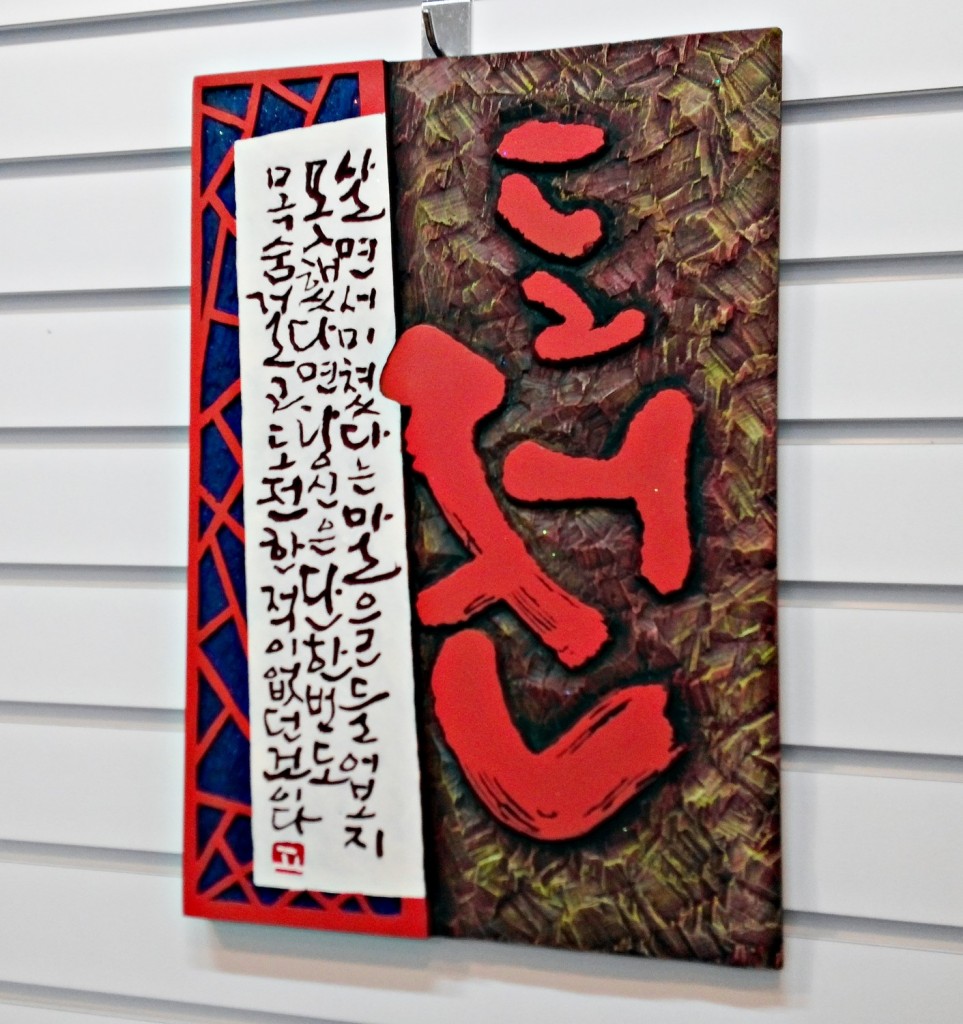 도전
살면서 미쳤다는 말을 들어보지
못했다면, 당신은 단 한번도
목숨걸고 도전한 적이 없던 것이다